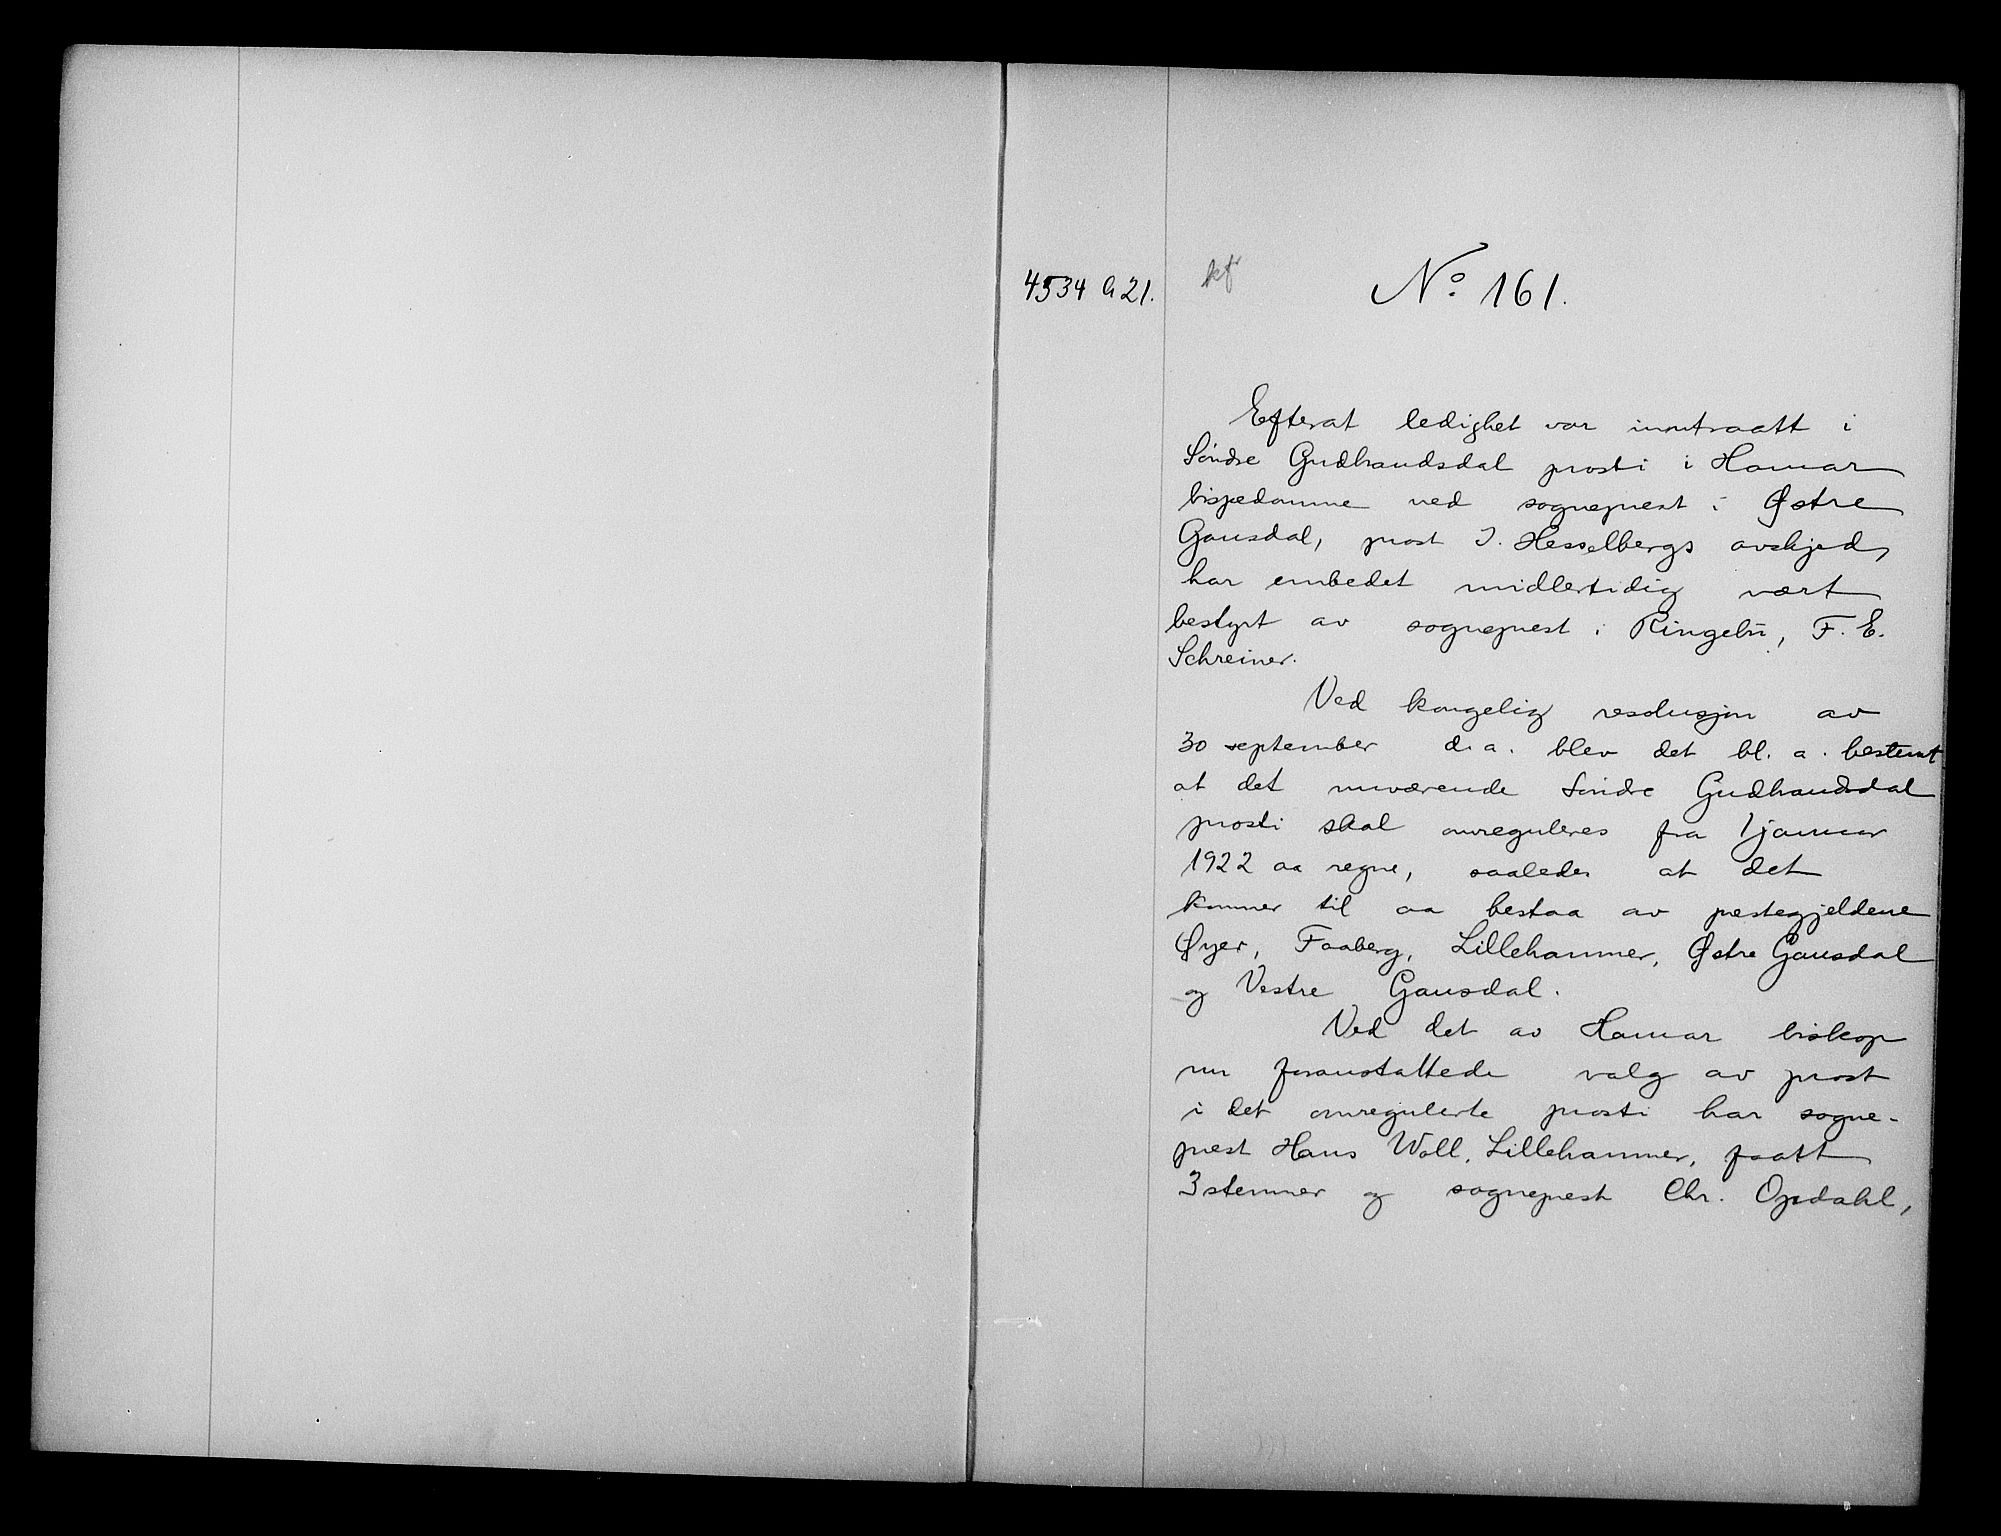 4534 A 21.
kfr
No 161.
Efterat ledighet var inntraatt i
Søndre Gudbrandsdal prosti i Hamar
bispedømme ved sogneprest i Østre
Gausdal, prost I. Hesselbergs avskjed,
har embedet midlertidig vært
bestyrt av sogneprest i Ringebu, F. E.
Schreiner.
Ved kongelig resolusjon av
30 september d. a. blev det bl. a. bestemt
at det nuværende Søndre Gudbrandsdal
prosti skal omreguleres fra 1 januar
1922 aa regne, saaledes at det
kommer til aa bestaa av prestegjeldene
Øyer, Faaberg, Lillehammer, Østre Gausdal
og Vestre Gausdal.
Ved det av Hamar biskop
nu foranstaltede valg av prost
i det omregulerte prosti har sogne-
prest Hans Woll, Lillehammer, faatt
3 stemmer og sogneprest Chr. Opdahl,